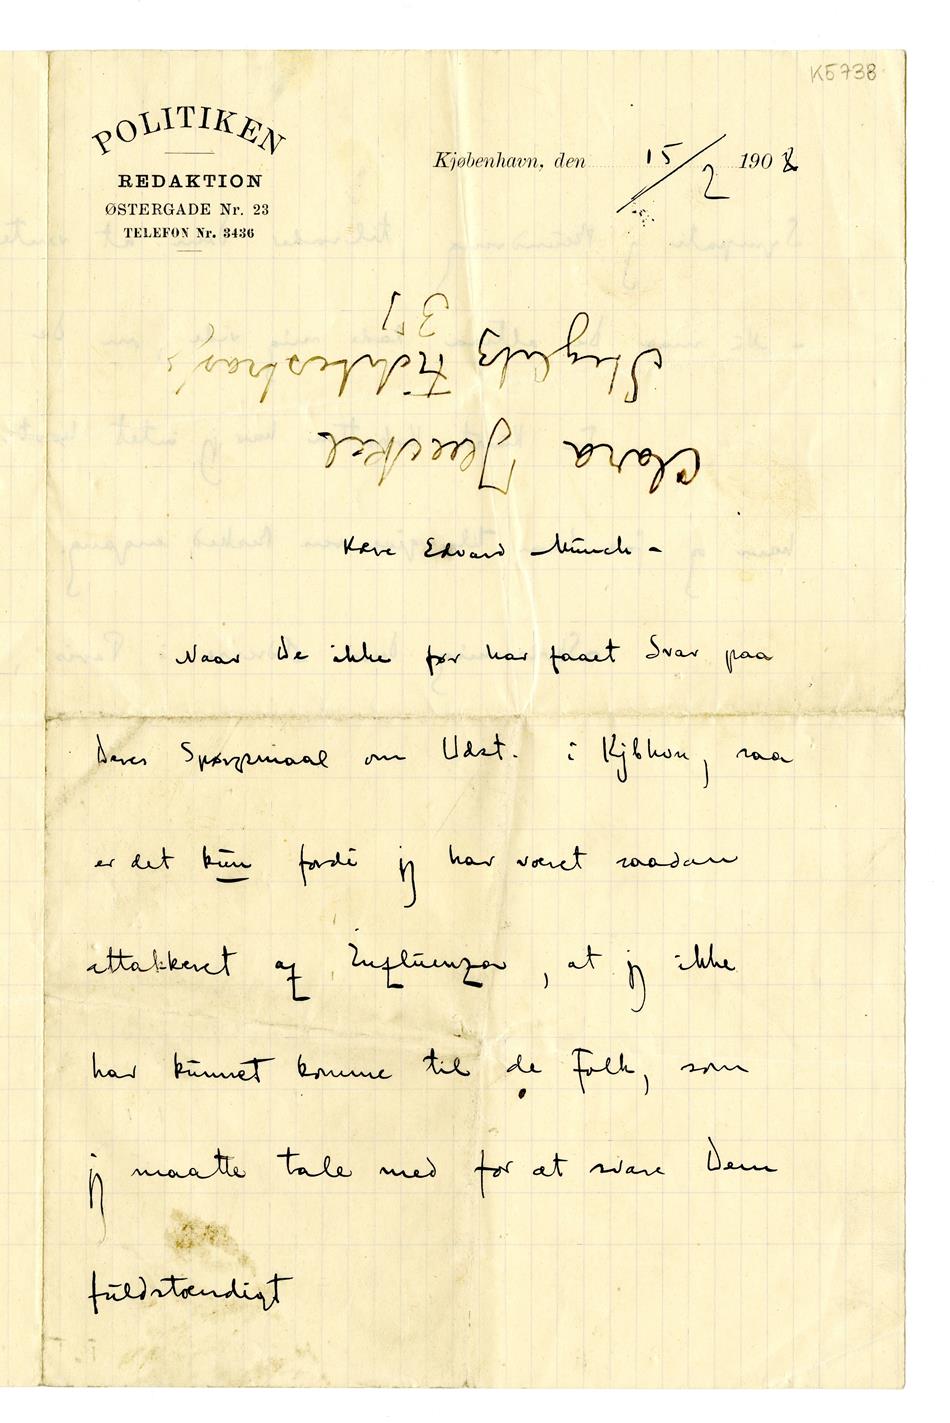 K5738
POLITIKEN
REDAKTION
ØSTERGADE Nr. 23
TELEFON Nr. 3436
Kjøbenhavn, den 15/2 1908
Clara Jaeckel
Steglitz Fichtestraße
57
Kære Edvard Munch –
Naar De ikke før har faaet Svar paa
Deres Spørgsmaal om Udst. i Kjbhvn, saa
er det kun fordi jeg har været saadan
attakkeret af Influenza, at jeg ikke
har kunnet komme til de Folk, som
jeg maatte tale med for at svare Dem
fuldstændigt